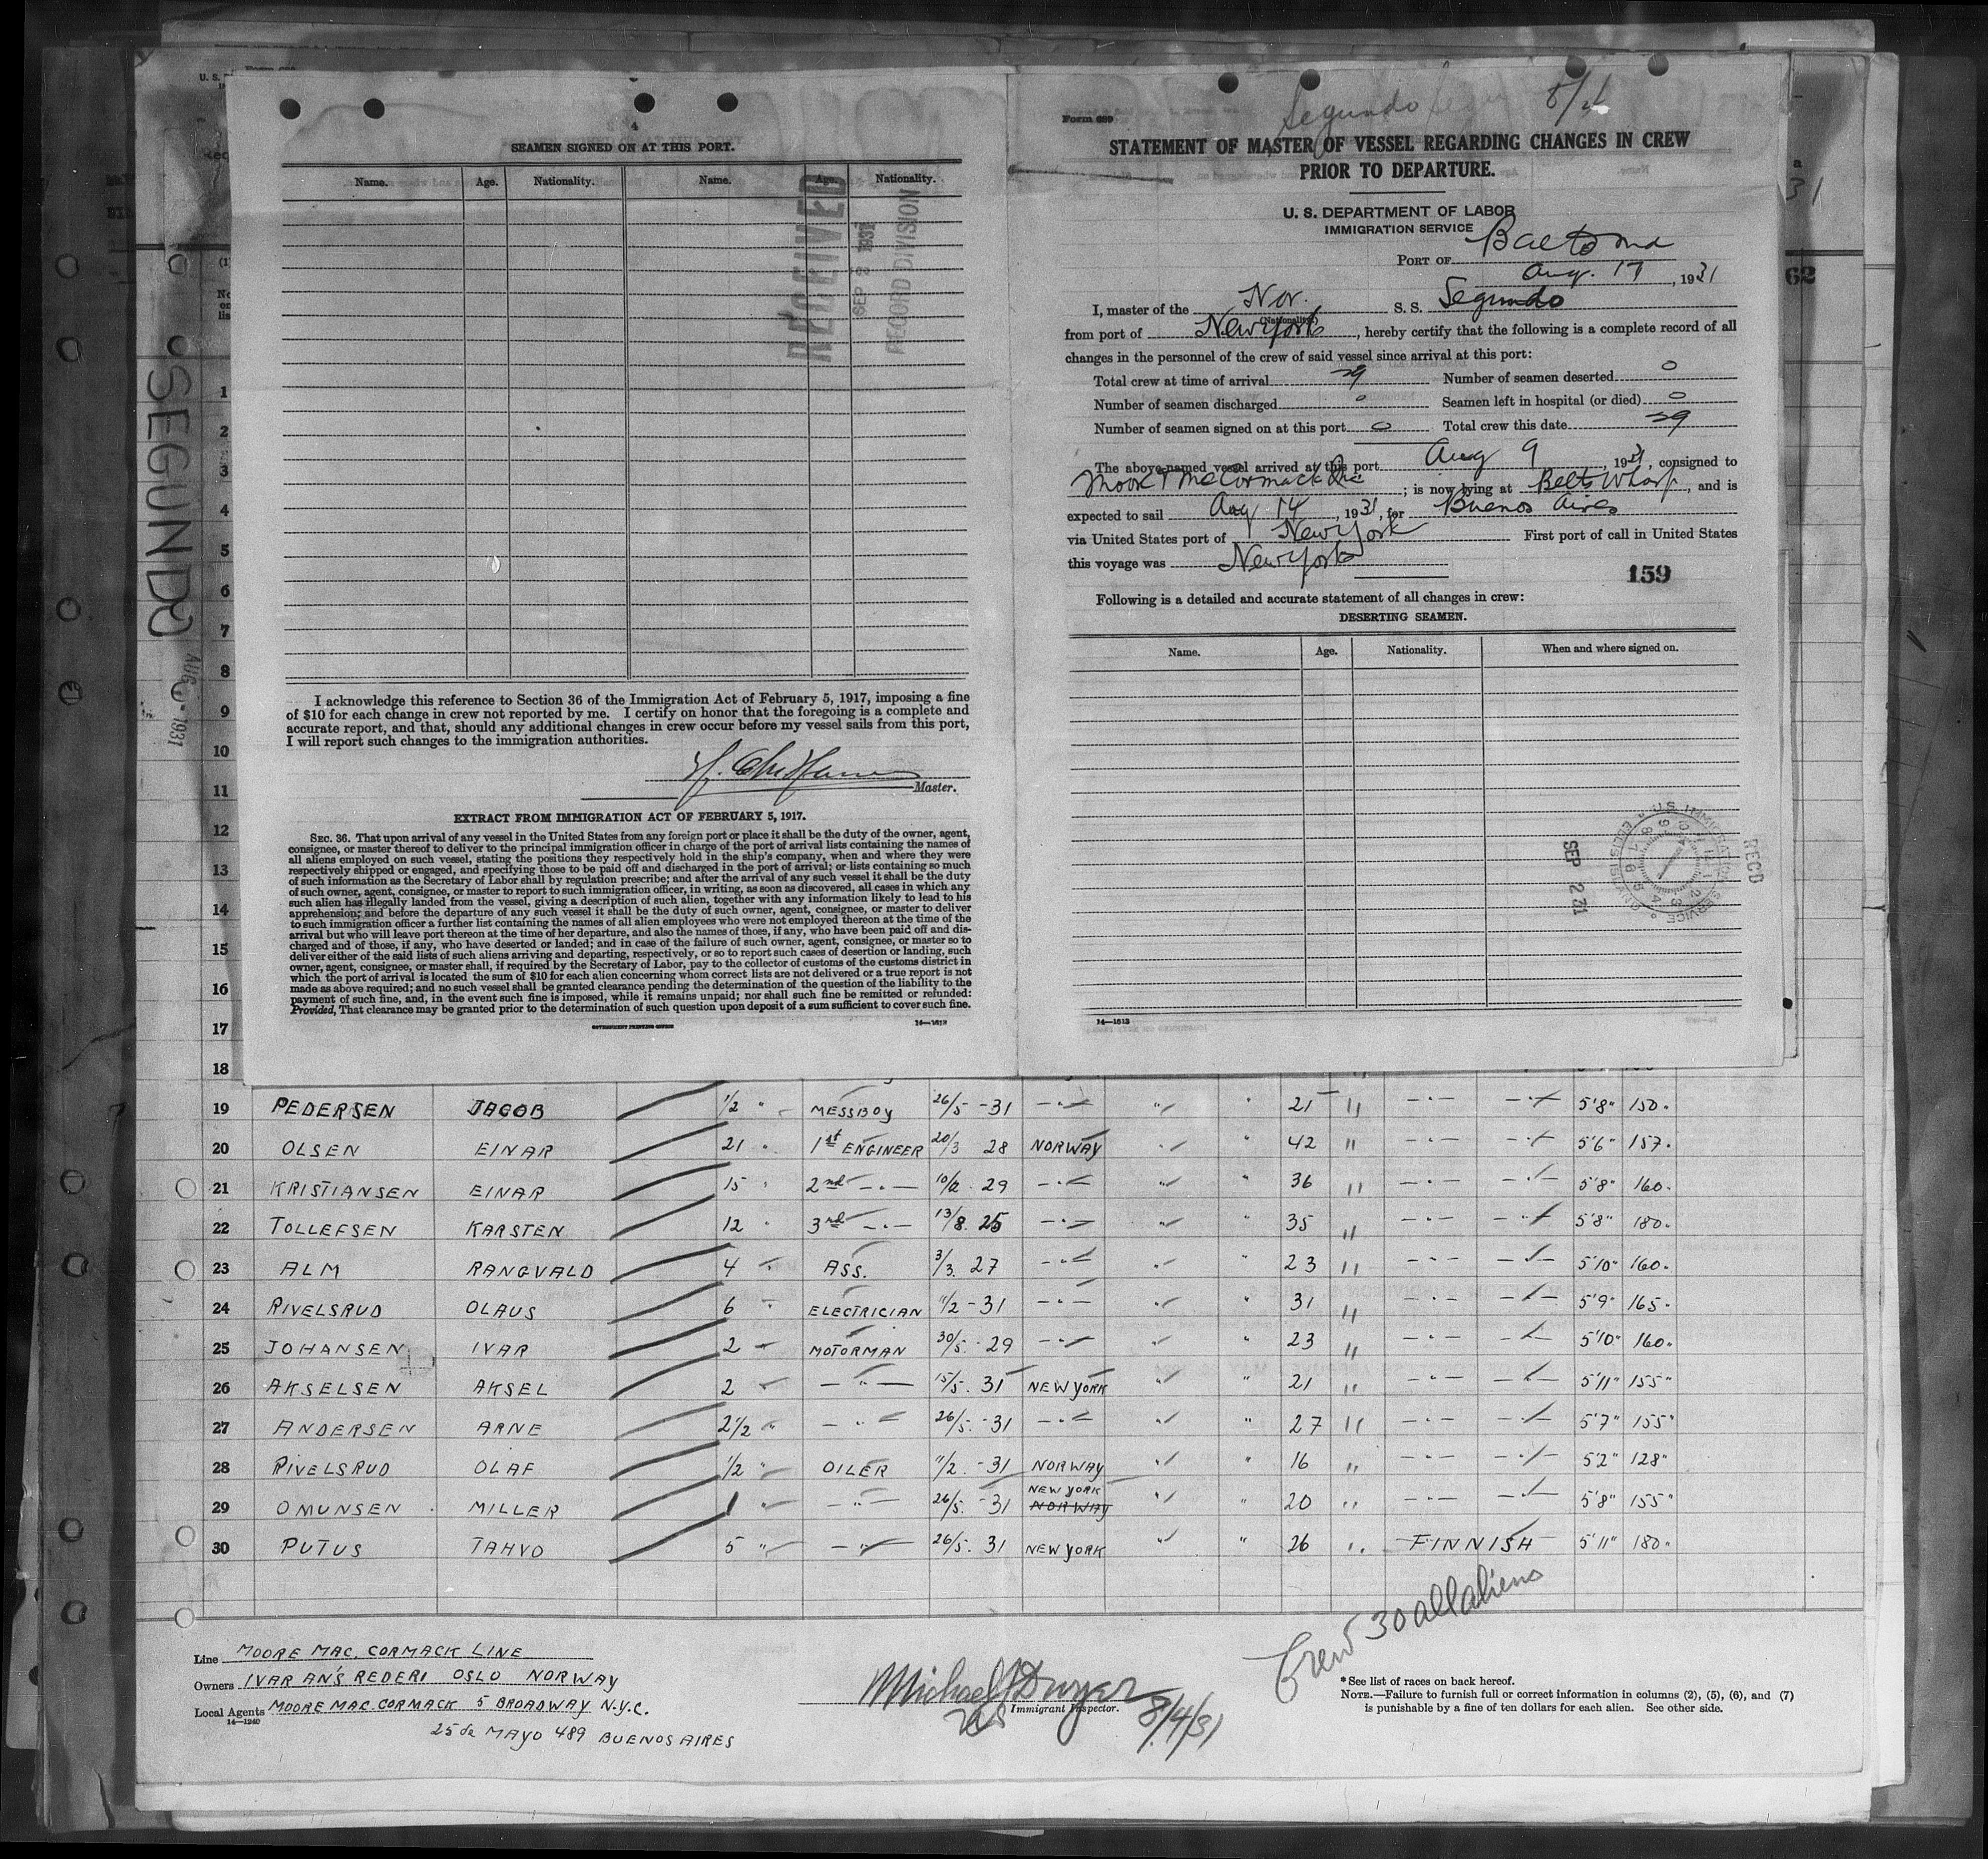 4
SEAMEN SIGNED ON AT THIS PORT.
Name. Age. Nationality. Name. Age. Nationality.
RECEIVED
SEP 2 1931
RECORD DIVISION
I acknowledge this reference to Section 36 of the Immigration Act of February 5, 1917, imposing a fine
of $10 for each change in crew not reported by me. I certify on honor that the foregoing is a complete and
accurate report, and that, should any additional changes in crew occur before my vessel sails from this port,
I will report such changes to the immigration authorities.
Master.
EXTRACT FROM IMMIGRATION ACT OF FEBRUARY 5, 1917.
SEC. 36. That upon arrival of any vessel in the United States from any foreign port or place it shall be the duty of the owner, agent,
consignee, or master thereof to deliver to the principal immigration officer in charge of the port of arrival lists containing the names of
all aliens employed on such vessel, stating the positions they respectively hold in the ship's company, when and where they were
respectively shipped or engaged, and specifying those to be paid off and discharged in the port of arrival; or lists containing so much
of such information as the Secretary of Labor shall by regulation prescribe; and after the arrival of any such vessel it shall be the duty
of such owner, agent, consignee, or master to report to such immigration officer, in writing, as soon as discovered, all cases in which any
such alien has illegally landed from the vessel, giving a description of such alien, together with any information likely to lead to his
apprehension; and before the departure of any such vessel it shall be the duty of such owner, agent, consignee, or master to deliver
to such immigration officer a further list containing the names of all alien employees who were not employed thereon at the time of the
arrival but who will leave port thereon at the time of her departure, and also the names of those, if any, who have been paid off and dis-
charged and of those, if any, who have deserted or landed; and in case of the failure of such owner, agent, consignee, or master so to
deliver either of the said lists of such aliens arriving and departing, respectively, or so to report such cases of desertion or landing, such
owner, agent, consignee, or master shall, if required by the Secretary of Labor, pay to the collector of customs of the customs district in
which the port of arrival is located the sum of $10 for each alien concerning whom correct lists are not delivered or a true report is not
made as above required; and no such vessel shall be granted clearance pending the determination of the question of the liability to the
payment of such fine, and, in the event such fine is imposed, while it remains unpaid; nor shall such fine be remitted or refunded:
Provided, That clearance may be granted prior to the determination of such question upon deposit of a sum sufficient to cover such fine.
GOVERNMENT PRINTING OFFICE 14—1613
Segundo
Form 689
STATEMENT OF MASTER OF VESSEL REGARDING CHANGES IN CREW
PRIOR TO DEPARTURE.
U. S. DEPARTMENT OF LABOR
IMMIGRATION SERVICE
PORT OF Balto Md
Aug. 17, 1931
I, master of the Nor. S. S. Segundo
(Nationality)
from port of New York, hereby certify that the following is a complete record of all
changes in the personnel of the crew of said vessel since arrival at this port:
Total crew at time of arrival 29 Number of seamen deserted 0
Number of seamen discharged 0 Seamen left in hospital (or died) 0
Number of seamen signed on at this port 0 Total crew this date 29
The above-named vessel arrived at this port Aug 9, 1931, consigned to
Moore & McCormack Inc; is now lying at Belts Wharf, and is
expected to sail Aug 14, 1931, for Buenos Aires
via United States port of New York First port of call in United States
this voyage was New York
159
Following is a detailed and accurate statement of all changes in crew:
DESERTING SEAMEN.
Name. Age. Nationality. When and where signed on.
RECD
SEP 2 31
14—1613
62
SEGUNDO
AUG 1931
1
2
3
4
5
6
7
8
9
10
11
12
13
14
15
16
17
18
19 PEDERSEN JACOB 1/2 " MESSBOY 26/5 -31 -"- " " 21 " -"- -"- 5'8" 150"
20 OLSEN EINAR 21 " 1st ENGINEER 20/3 28 NORWAY " " 42 " -"- -"- 5'6" 157"
21 KRISTIANSEN EINAR 15 " 2nd -"- 10/2 29 -"- " " 36 " -"- -"- 5'8" 160"
22 TOLLEFSEN KARSTEN 12 " 3rd -"- 13/8. 25 -"- " " 35 " -"- -"- 5'8" 180"
23 ALM RANGVALD 4 " ASS. 3/3. 27 -"- " " 23 " -"- -"- 5'10" 160"
24 RIVELSRUD OLAUS 6 " ELECTRICIAN 11/2 -31 -"- " " 31 " -"- -"- 5'9" 165"
25 JOHANSEN IVAR 2 " MOTORMAN 30/5. 29 -"- " " 23 " -"- -"- 5'10" 160"
26 AKSELSEN AKSEL 2 " -"- 15/5. 31 NEW YORK " " 21 " -"- -"- 5'11" 155"
27 ANDERSEN ARNE 2 1/2 " -"- 26/5. -31 -"- " " 27 " -"- -"- 5'7" 155"
28 RIVELSRUD OLAF 1/2 " OILER 11/2. -31 NORWAY " " 16 " -"- -"- 5'2" 128"
29 OMUNSEN MILLER 1 " -"- 26/5. -31 NEW YORK NORWAY " " 20 " -"- -"- 5'8" 155"
30 PUTUS TAHVO 5 " -"- 26/5. 31 NEW YORK " " 26 " FINNISH 5'11" 180"
Crew 30 all aliens
Line MOORE MAC. CORMACK LINE
Owners IVAR AN'S REDERI OSLO NORWAY
Local Agents MOORE MAC. CORMACK 5 BROADWAY N.Y.C.
14—1240
25 de MAYO 489 BUENOS AIRES
Michael J Dwyer
Immigrant Inspector. 8/4/31
* See list of races on back hereof.
NOTE.—Failure to furnish full or correct information in columns (2), (5), (6), and (7)
is punishable by a fine of ten dollars for each alien. See other side.